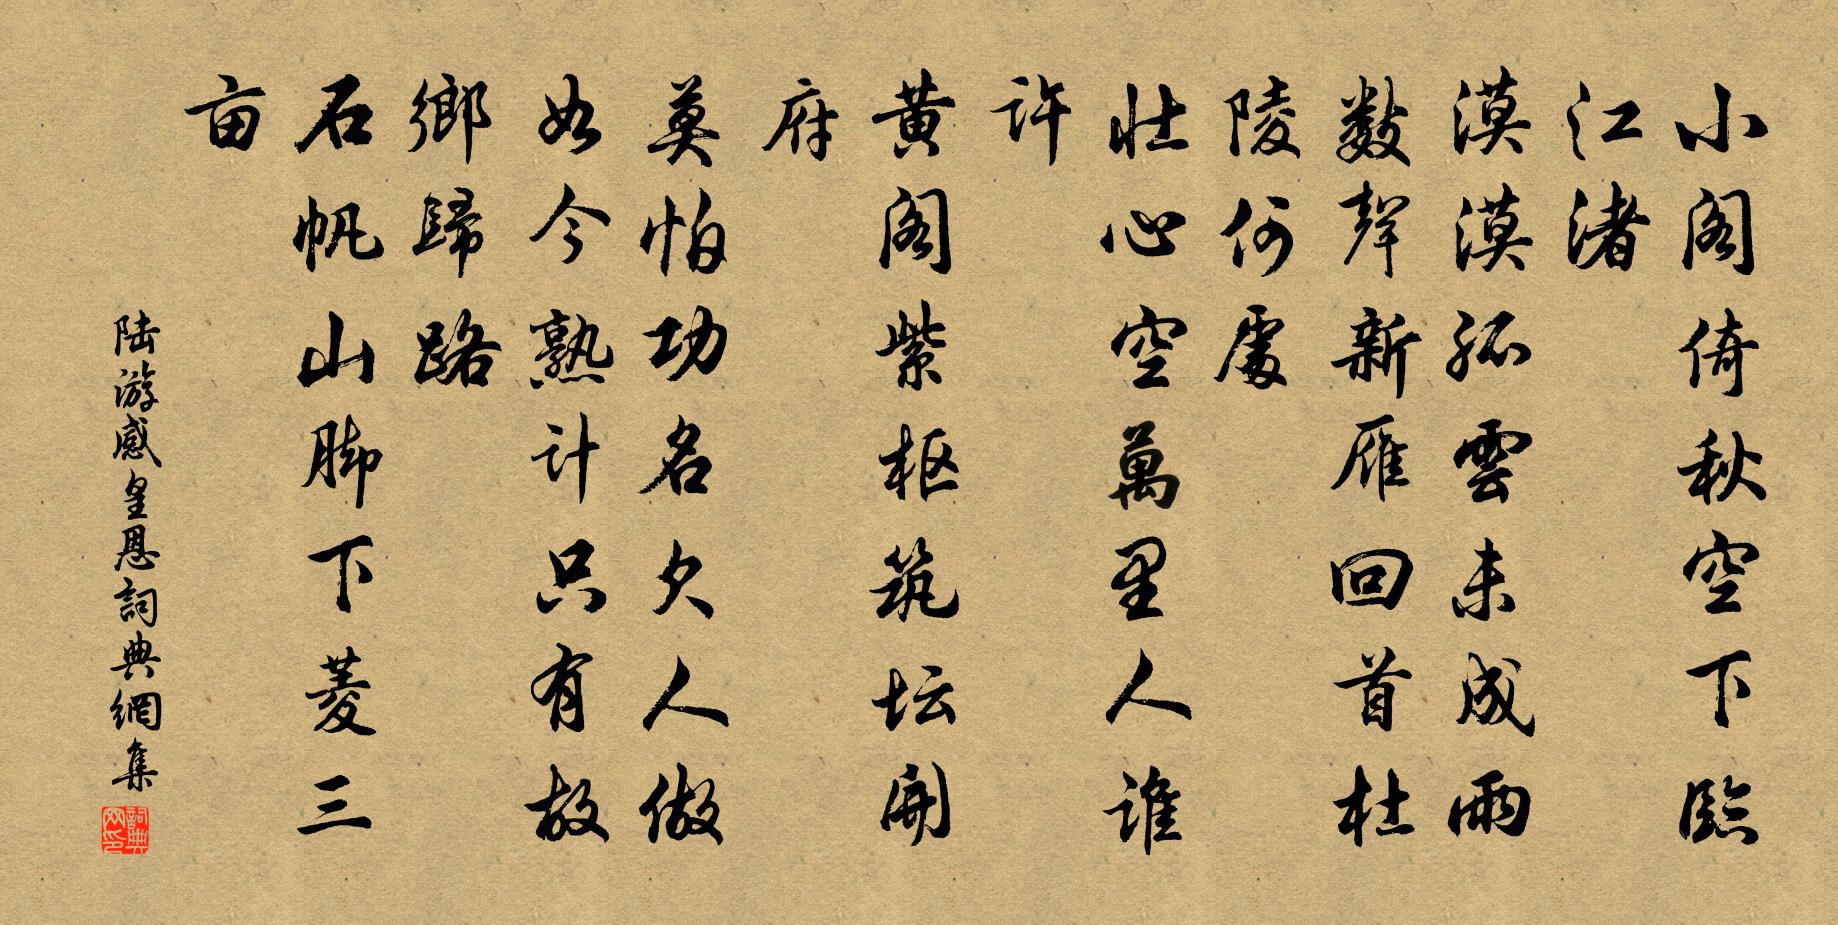 小阁倚秋空下臨
江渚
漠漠孤雲未成雨
数聲新雁回首杜
陵何處
壮心空萬里人谁
许
黄阁紫枢筑坛開
府
莫怕功名欠人做
如今熟计只有故
鄉歸路
石帆山脚下菱三
亩
陆游感皇恩詞典網集
詞典網印